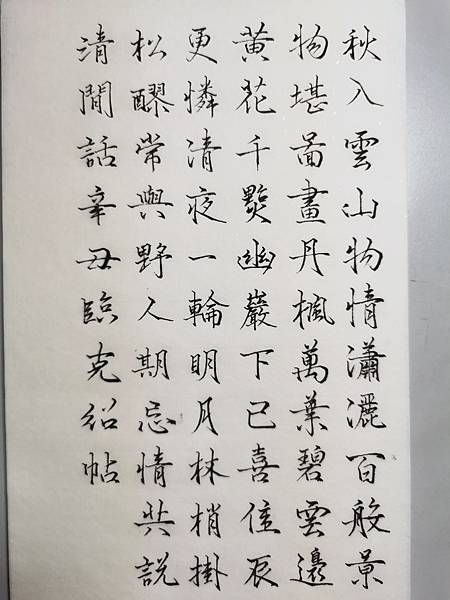 秋入雲山物情瀟灑百般景
物堪圖畫丹楓萬葉碧雲邊
黃花千點幽巖下已喜佳辰
更憐清夜一輪明月林梢掛
松醪常與野人期忘情共說
清閒話辛丑臨克紹帖